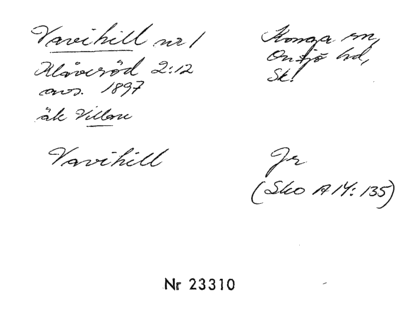 Vavihill nr 1
Klåveröd 2:12
avs. 1897
äk Villan
Konga sn,
Onsjö hd,
Sk!
Vavihill
Jr
(Sko A14:135)
Nr 23310